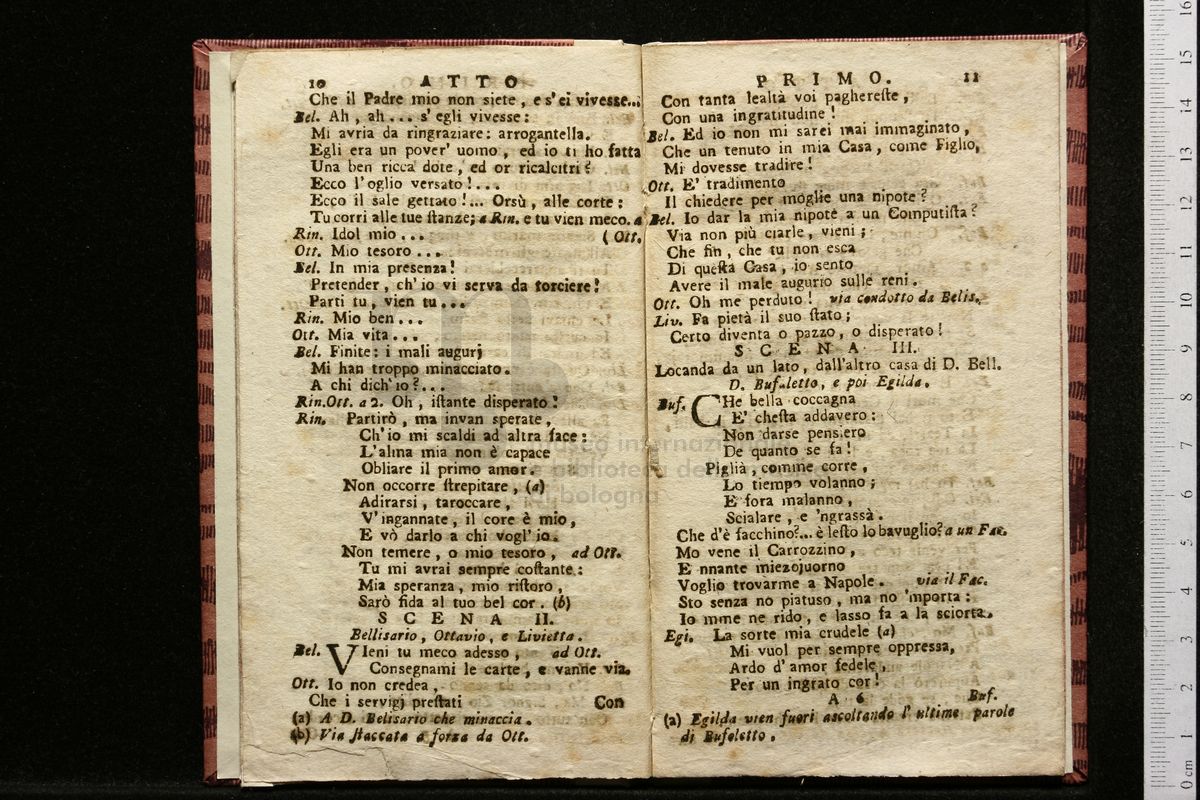 10 ATTO
Che il Padre mio non siete, e s'ei vivesse...
Bel. Ah, ah... s'egli vivesse:
Mi avria da ringraziare: arrogantella.
Egli era un pover' uomo, ed io ti ho fatta
Una ben ricca dote, ed or ricalcitri?
Ecco l'oglio versato!...
Ecco il sale gettato!... Orsù, alle corte:
Tu corri alle tue ſtanze; a Rin. e tu vien meco. a
Rin. Idol mio... (Ott.
Ott. Mio tesoro...
Bel. In mia presenza!
Pretender, ch'io vi serva da torciere!
Parti tu, vien tu...
Rin. Mio ben...
Ott. Mia vita...
Bel. Finite: i mali augurj
Mi han troppo minacciato.
A chi dich'io?...
Rin.Ott. a 2. Oh, iſtante disperato!
Rin. Partirò, ma invan sperate,
Ch'io mi scaldi ad altra face:
L'alma mia non è capace
Obliare il primo amor.
Non occorre ſtrepitare, (a)
Adirarsi, taroccare,
V'ingannate, il core è mio,
E vò darlo a chi vogl'io.
Non temere, o mio tesoro, ad Ott.
Tu mi avrai sempre coſtante:
Mia speranza, mio riſtoro,
Sarò fida al tuo bel cor. (b)
SCENA II.
Bellisario, Ottavio, e Livietta.
Bel. VIeni tu meco adesso, ad Ott.
Consegnami le carte, e vanne via.
Ott. Io non credea,
Che i servigj preſtati Con
(a) A D. Belisario che minaccia.
(b) Via ſtaccata a forza da Ott.
PRIMO. 11
Con tanta lealtà voi paghereſte,
Con una ingratitudine!
Bel. Ed io non mi sarei mai immaginato,
Che un tenuto in mia Casa, come Figlio,
Mi dovesse tradire!
Ott. E' tradimento
Il chiedere per moglie una nipote?
Bel. Io dar la mia nipote a un Computiſta?
Via non più ciarle, vieni;
Che fin, che tu non esca
Di queſta Casa, io sento
Avere il male augurio sulle reni.
Ott. Oh me perduto! via condotto da Belis.
Liv. Fa pietà il suo ſtato;
Certo diventa o pazzo, o disperato!
SCENA III.
Locanda da un lato, dall'altro casa di D. Bell.
D. Bufaletto, e poi Egilda.
Buf. CHe bella coccagna
E' cheſta addavero:
Non darse pensiero
De quanto se fa!
Piglià, comme corre,
Lo tiempo volanno;
E fora malanno,
Scialare, e 'ngrassà.
Che d'è facchino?... è leſto lo bavuglio? a un Fac.
Mo vene il Carrozzino,
E nnante miezojuorno
Voglio trovarme a Napole. via il Fac.
Sto senza no piatuso, ma no 'mporta:
Io mme ne rido, e lasso fa a la sciorta.
Egi. La sorte mia crudele (a)
Mi vuol per sempre oppressa,
Ardo d'amor fedele,
Per un ingrato cor!
A 6 Buf.
(a) Egilda vien fuori ascoltando l'ultime parole
di Bufoletto.
museo internazionale
e biblioteca della
di bologna
16
15
14
13
12
11
10
9
8
7
6
5
4
3
2
1
0 cm